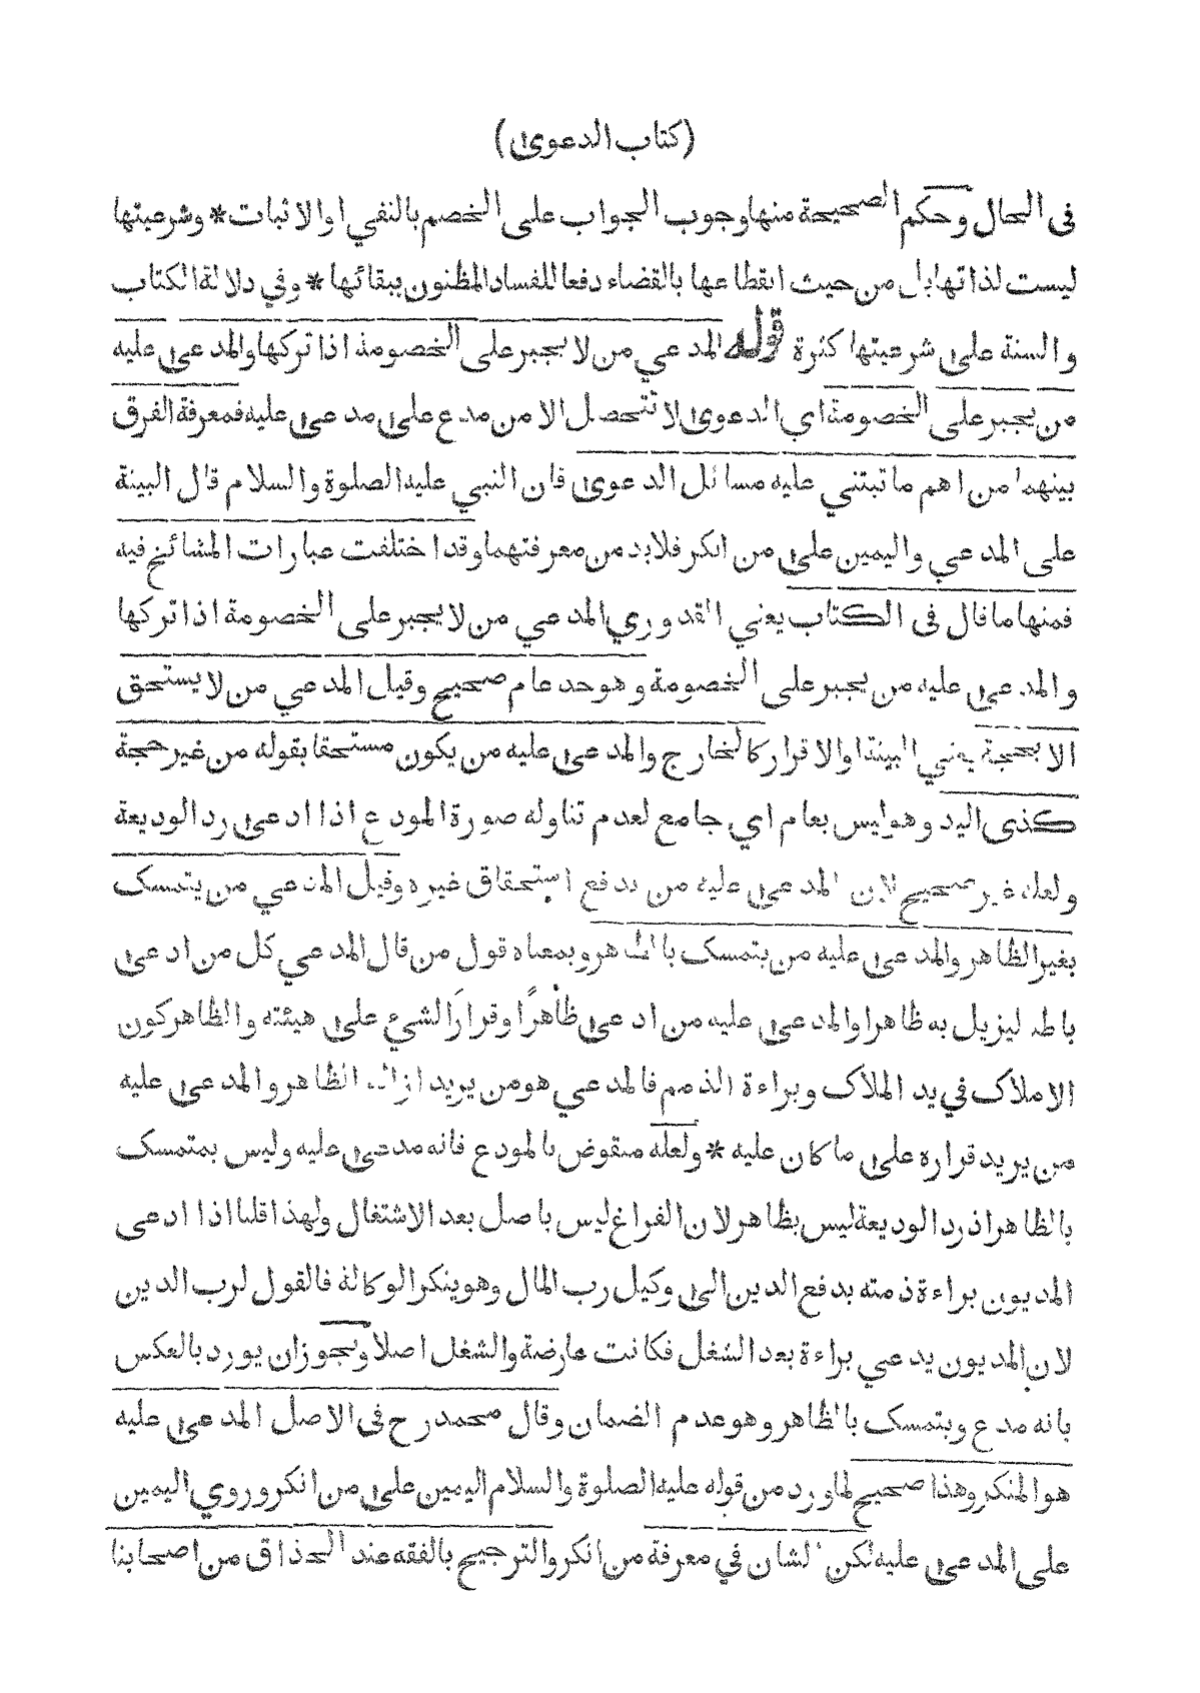 (كتاب الدعوى)
فى الحال وحكم الصحيحة منها وجوب الجواب على الخصم بالنفي او الاثبات * وشرعيتها
ليست لذاتها بل من حيث انقطاعها بالقضاء دفعا للفساد المظنون ببقائها * وفي دلالة الكتاب
والسنة على شرعيتها كثرة قوله المدعي من لا يجبر على الخصومة اذا تركها والمدعى عليه
من يجبر على الخصومة اي الدعوى لا تتحصل الا من مدع على مدعى عليه فمعرفة الفرق
بينهما من اهم ما تبتني عليه مسائل الدعوى فان النبي عليه الصلوة والسلام قال البينة
على المدعي واليمين على من انكر فلابد من معرفتهما وقد اختلفت عبارات المشائخ فيه
فمنها ما قال فى الكتاب يعني القدوري المدعي من لا يجبر على الخصومة اذا تركها
والمدعى عليه من يجبر على الخصومة وهو حد عام صحيح وقيل المدعي من لا يستحق
الا بحجة يعني البينة او الاقرار كالخارج والمدعى عليه من يكون مستحقا بقوله من غير حجة
كذى اليد وهو ليس بعام اي جامع لعدم تناوله صورة المودع اذا ادعى رد الوديعة
ولعله غير صحيح لان المدعى عليه من يدفع استحقاق غيره وقيل المدعي من يتمسك
بغير الظاهر والمدعى عليه من يتمسك بالظاهر وبمعناه قول من قال المدعي كل من ادعى
باطنا ليزيل به ظاهرا والمدعى عليه من ادعى ظاهرًا وقرارَ الشيء على هيئته والظاهر كون
الاملاك في يد الملاك وبراءة الذمم فالمدعي هو من يريد ازالة الظاهر والمدعى عليه
من يريد قراره على ما كان عليه * ولعله منقوض بالمودع فانه مدعى عليه وليس بمتمسك
بالظاهر اذ رد الوديعة ليس بظاهر لان الفراغ ليس باصل بعد الاشتغال ولهذا قلنا اذا ادعى
المديون براءة ذمته بدفع الدين الى وكيل رب المال وهو ينكر الوكالة فالقول لرب الدين
لان المديون يدعي براءة بعد الشغل فكانت عارضة والشغل اصلا ويجوز ان يورد بالعكس
بانه مدع ويتمسك بالظاهر وهو عدم الضمان وقال محمد رح فى الاصل المدعى عليه
هو المنكر وهذا صحيح لما ورد من قوله عليه الصلوة والسلام اليمين على من انكر وروي اليمين
على المدعى عليه لكن الشان في معرفة من انكر والترجيح بالفقه عند الحذاق من اصحابنا